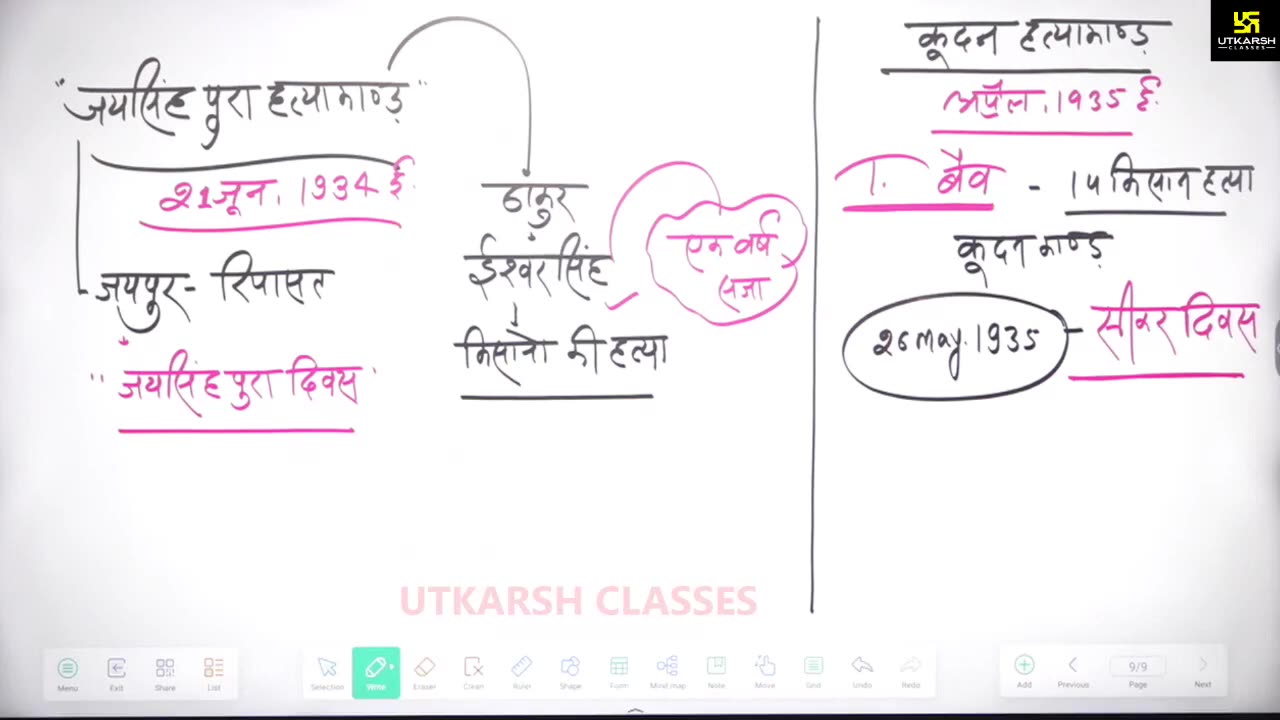 "जयसिंह पुरा हत्याकाण्ड"
21 जून, 1934 ई.
जयपुर - रियासत
"जयसिंह पुरा दिवस"
ठाकुर
ईश्वर सिंह
किसानो की हत्या
एक वर्ष
सजा
कूदन हत्याकाण्ड
अप्रैल, 1935 ई.
T. बैव - 14 किसान हत्या
कूदन काण्ड
26 May, 1935 - सीकर दिवस
UTKARSH
CLASSES
UTKARSH CLASSES
Menu Exit Share List Selection Write Eraser Clean Ruler Shape Form Mind map Note Move Grid Undo Redo Add Previous 9/9 Page Next